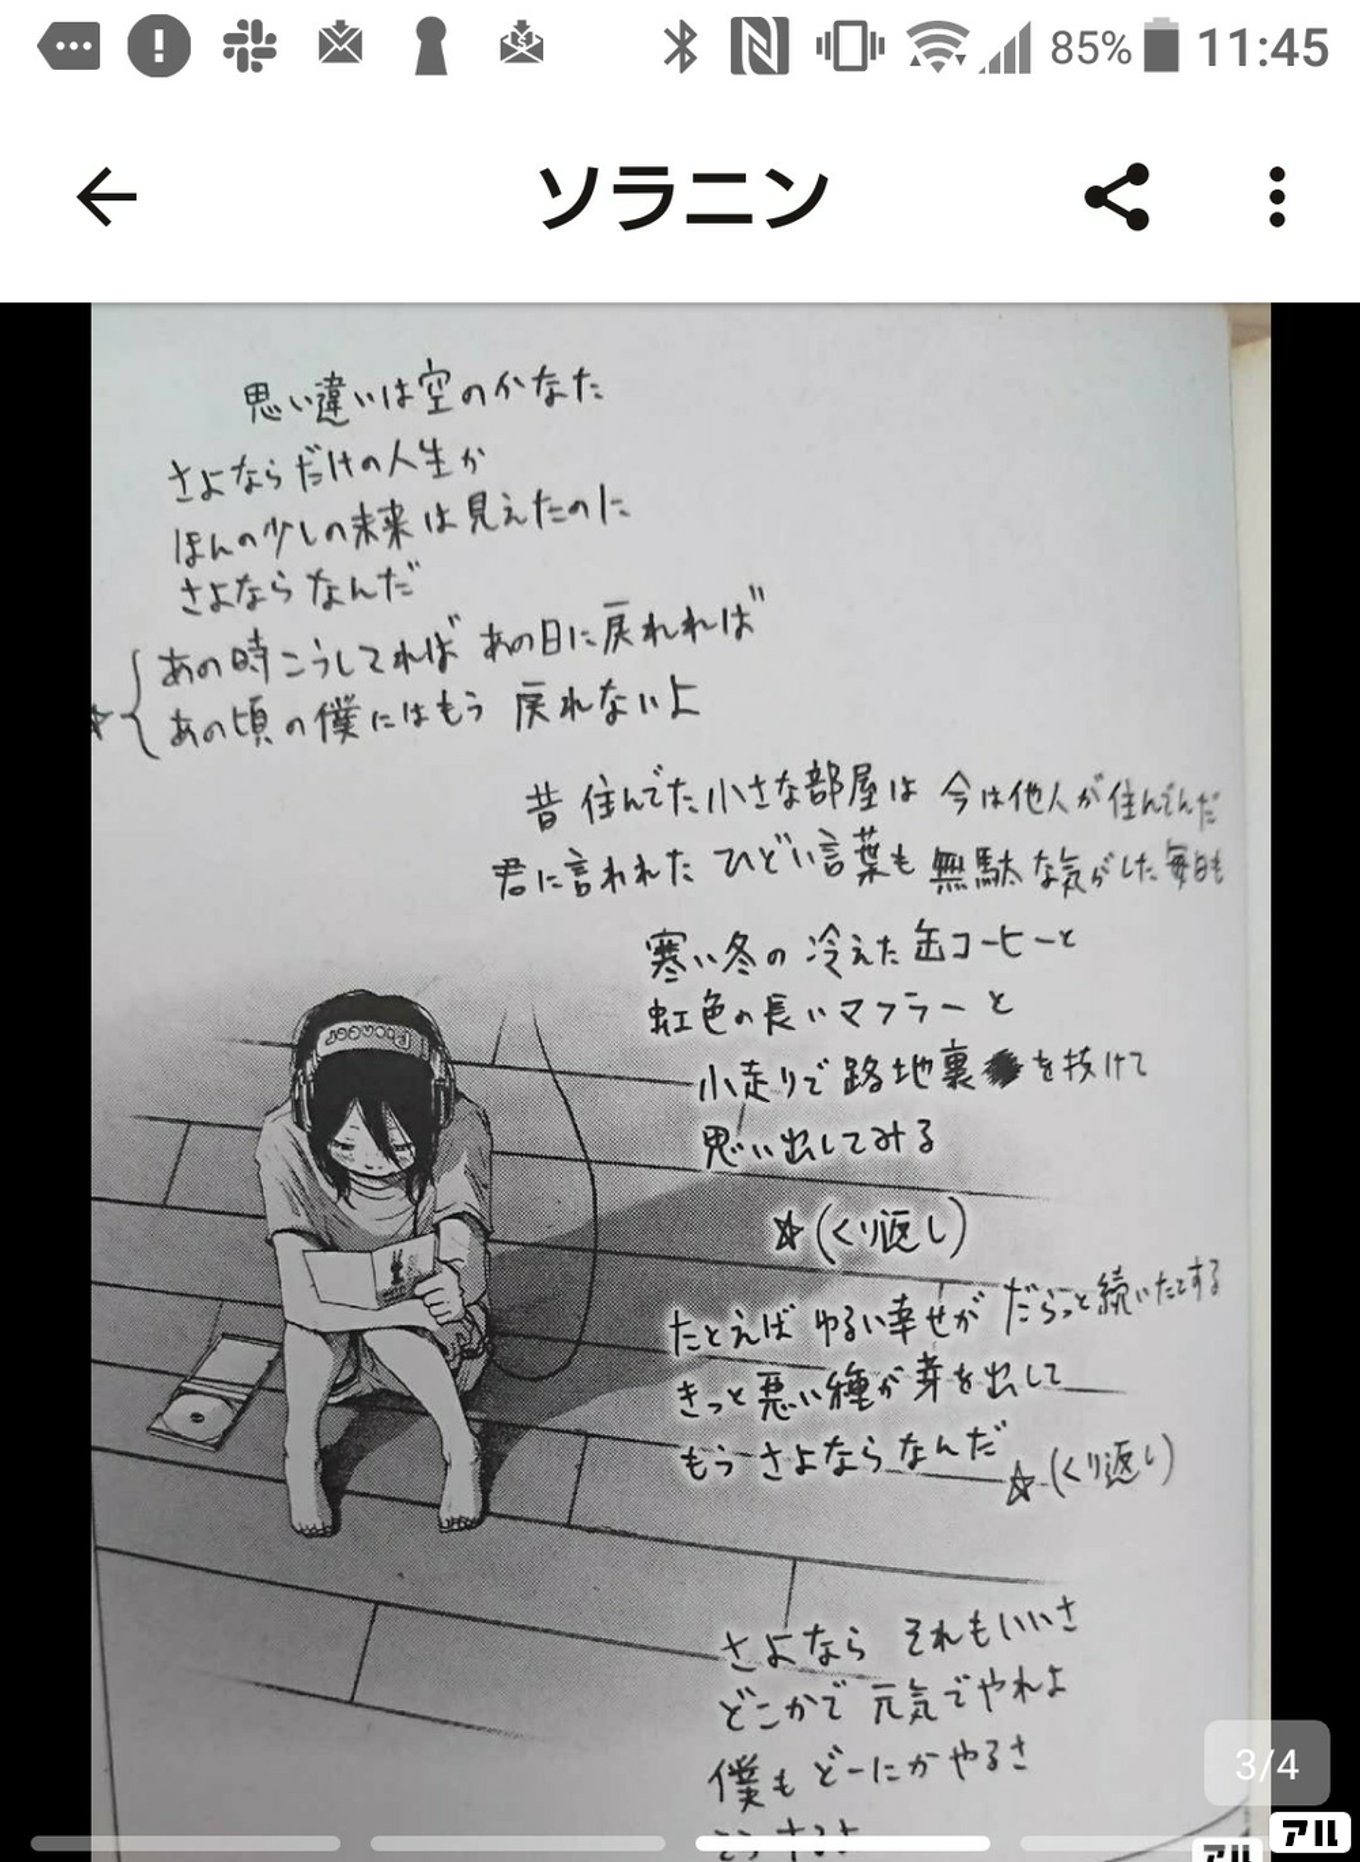 85% 11:45
ソラニン
思い違いは空のかなた
さよならだけの人生か
ほんの少しの未来は見えたのに
さよならなんだ
あの時こうしてれば あの日に戻れれば
☆ あの頃の僕にはもう 戻れないよ
昔 住んでた小さな部屋は 今は他人が住んでんだ
君に言われた ひどい言葉も 無駄な気がした毎日も
寒い冬の 冷えた缶コーヒーと
虹色の長いマフラーと
小走りで 路地裏を抜けて
思い出してみる
☆(くり返し)
たとえば ゆるい幸せが だらっと続いたとする
きっと悪い種が芽を出して
もう さよならなんだ ☆(くり返し)
さよなら それもいいさ
どこかで 元気でやれよ
僕も どーにかやるさ
そうするよ
3/4
アル
アル